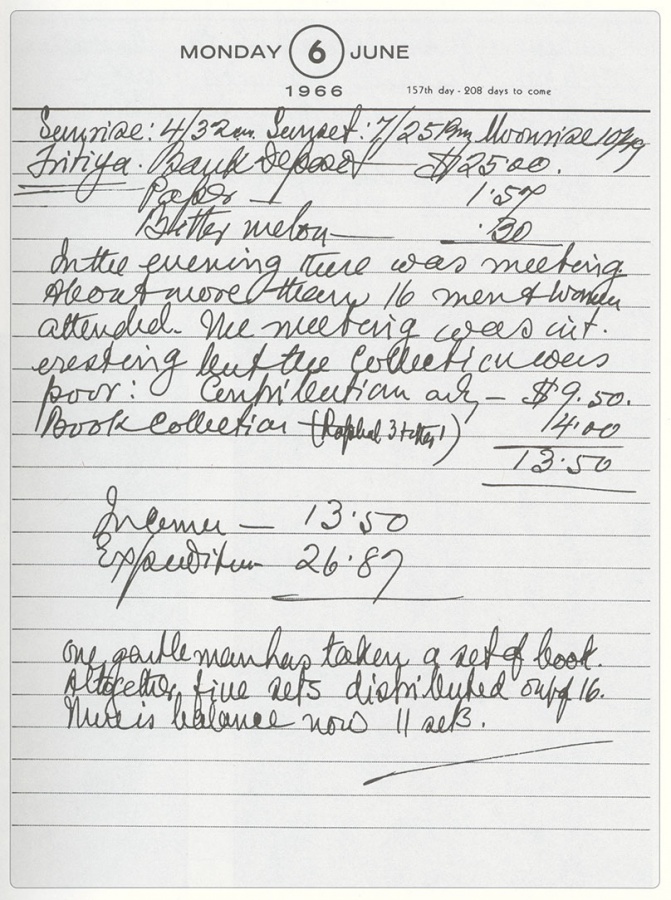 MONDAY 6 JUNE
1966 157th day - 208 days to come
Sunrise: 4/32 am. Sunset: 7/25 Pm Moonrise 10/49
Tritiya. Bank Deposet — $25.00.
Paper — 1.57
Bitter melon — .30
In the evening there was meeting.
About more than 16 men & women
attended. The meeting was int-
eresting but the collection was
poor: Contribution only — $9.50.
Book Collection (Raphal 3 + 1) 4.00
13.50
Income — 13.50
Expenditure 26.87
One gentleman has taken a set of book.
Altogether, five sets distributed out of 16.
There is balance now 11 sets.